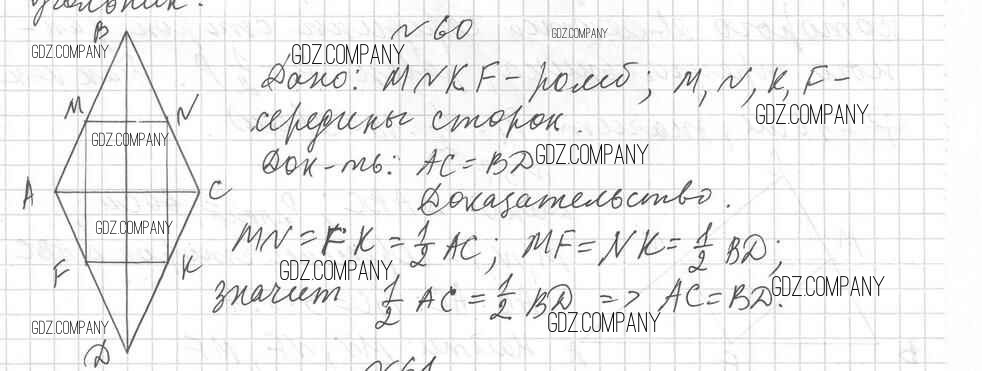 угольник.
№ 60
Дано: MNKF - ромб; M, N, K, F -
середины сторон.
Док-ть: AC = BD
Доказательство.
MN = FK = 1/2 AC; MF = NK = 1/2 BD;
значит 1/2 AC = 1/2 BD => AC = BD.
№ 61
B
M
N
A
C
F
K
D
GDZ.COMPANY
GDZ.COMPANY
GDZ.COMPANY
GDZ.COMPANY
GDZ.COMPANY
GDZ.COMPANY
GDZ.COMPANY
GDZ.COMPANY
GDZ.COMPANY
GDZ.COMPANY
GDZ.COMPANY